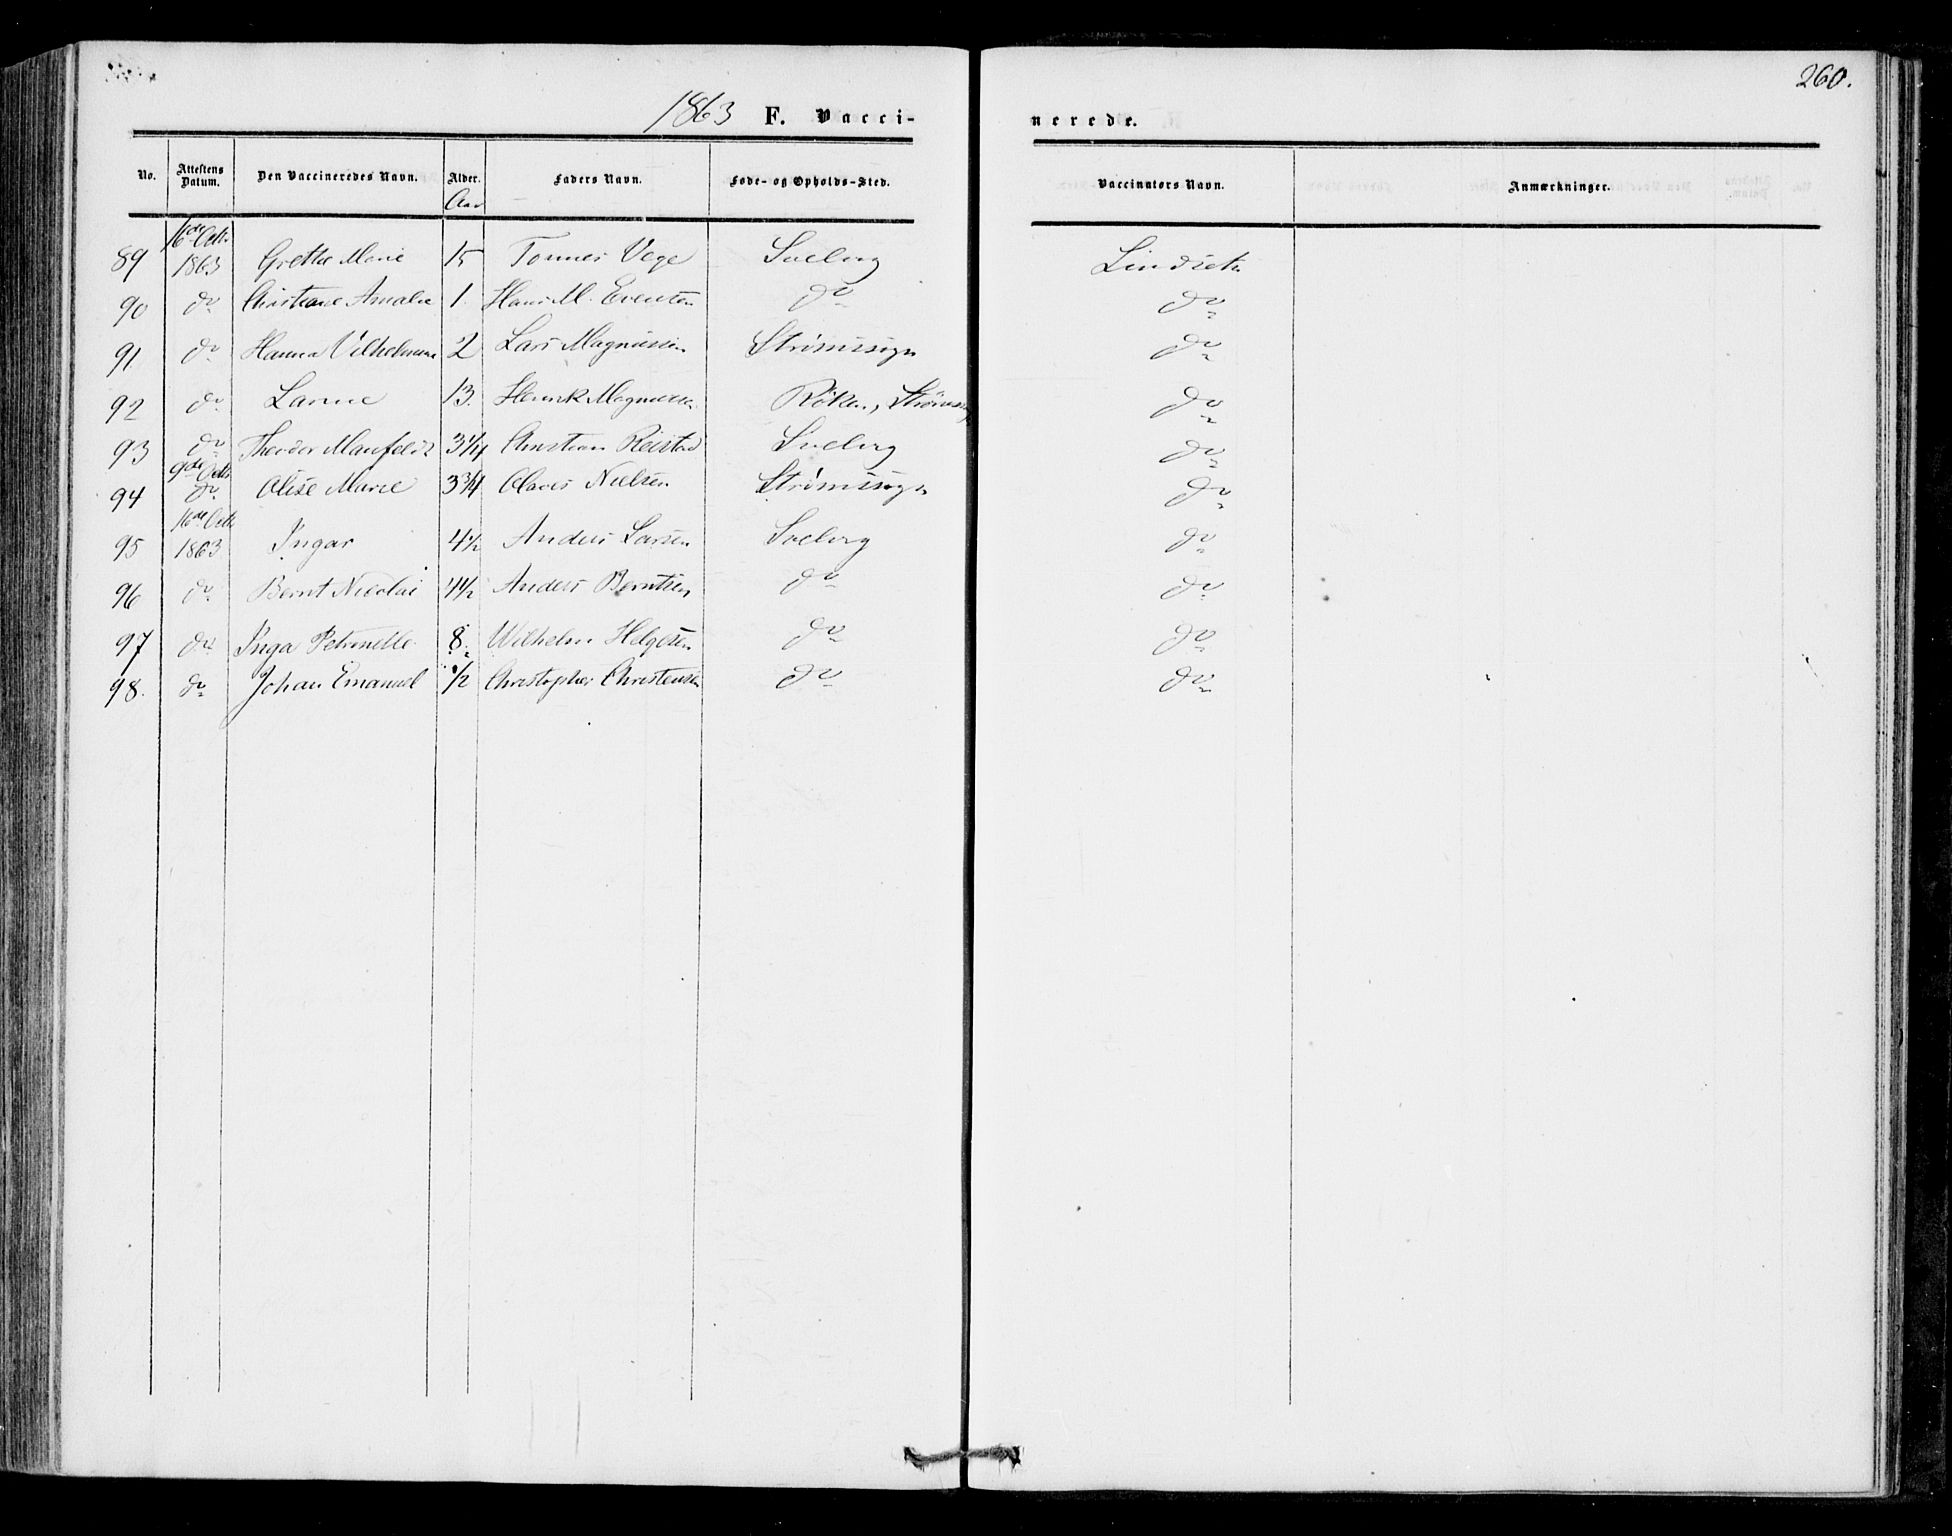 260.
1863 F. Vaccinerede.
No. Attestens Datum. Den Vaccineredes Navn. Alder. Faders Navn. Føde- og Opholds-Sted. Vaccinators Navn. Anmærkninger.
Aar
89 16de Octb. 1863 Grethe Marie 15 Tonnes Vege Svelvig Lindseth
90 do Christiane Amalie 1. Hans M. Evensen do do
91 do Hanna Vilhelmine 2 Lars Magnussen Strømssogn do
92 do Larine 13. Henrik Magnussen Röken, Strømssogn do
93 do Theodor Manfeldt 3 1/4 Christian Reistad Svelvig do
94 9de Octb. do Elise Marie 3 3/4 Claus Nielsen Strømssogn do
95 16de Octb. 1863 Ingar 4 1/2 Anders Larsen Svelvig do
96 do Bernt Nicolai 4 1/2 Anders Berntsen do do
97 do Inga Petronelle 8. Wilhelm Helgesen do do
98. do Johan Emanuel 1/2 Christopher Christensen do do